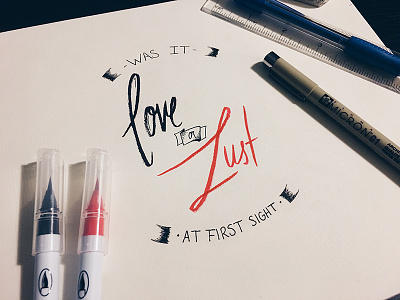 - WAS IT -
Love
or
Lust
· AT FIRST SIGHT ·
MICRON